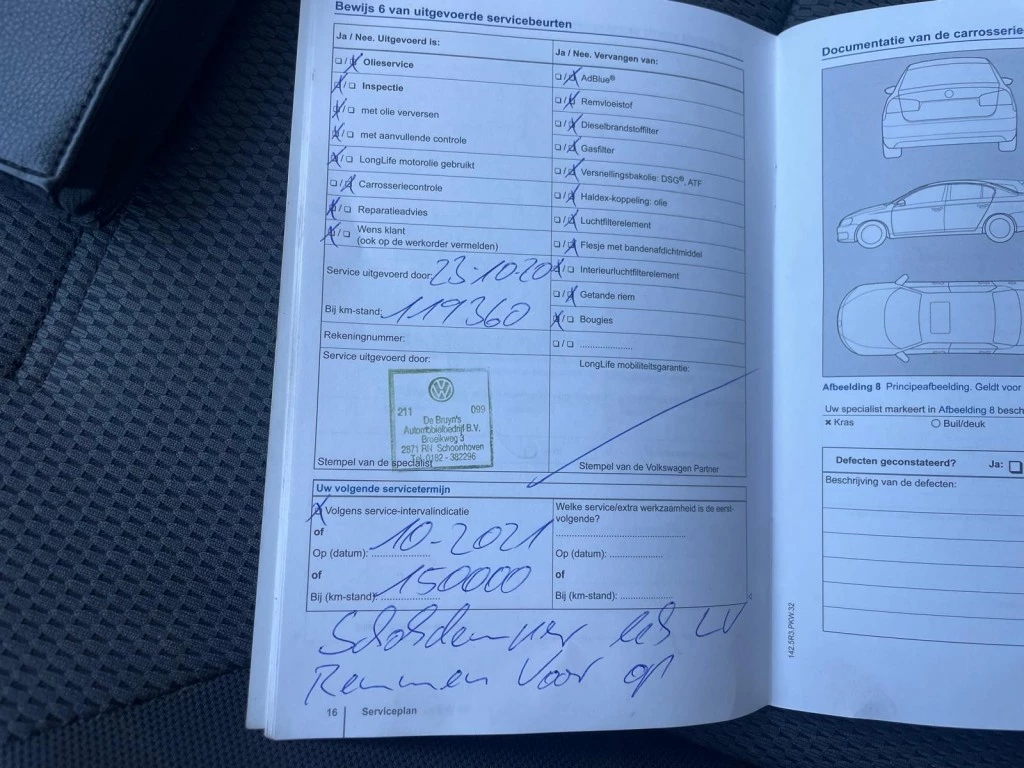 Bewijs 6 van uitgevoerde servicebeurten
Ja / Nee. Uitgevoerd is:
Olieservice
Inspectie
met olie verversen
met aanvullende controle
LongLife motorolie gebruikt
Carrosseriecontrole
Reparatieadvies
Wens klant
(ook op de werkorder vermelden)
Service uitgevoerd door: 23-10-20
Bij km-stand: 119360
Rekeningnummer:
Service uitgevoerd door:
VW
211 099
De Bruyn's
Automobielbedrijf B.V.
Broeikweg 3
2871 RN Schoonhoven
Tel. 0182 - 382296
Stempel van de specialist
Ja / Nee. Vervangen van:
AdBlue®
Remvloeistof
Dieselbrandstoffilter
Gasfilter
Versnellingsbakolie: DSG®, ATF
Haldex-koppeling: olie
Luchtfilterelement
Flesje met bandenafdichtmiddel
Interieurluchtfilterelement
Getande riem
Bougies
LongLife mobiliteitsgarantie:
Stempel van de Volkswagen Partner
Uw volgende servicetermijn
Volgens service-intervalindicatie
of
Op (datum): 10-2021
of
Bij (km-stand): 150000
Welke service/extra werkzaamheid is de eerst-
volgende?
Op (datum):
of
Bij (km-stand):
Schokdemper lek LV
Remmen voor op
16 Serviceplan
142.5R3.PKW.32
Documentatie van de carrosserie
Afbeelding 8 Principeafbeelding. Geldt voor
Uw specialist markeert in Afbeelding 8 besch
Kras Buil/deuk
Defecten geconstateerd? Ja:
Beschrijving van de defecten: